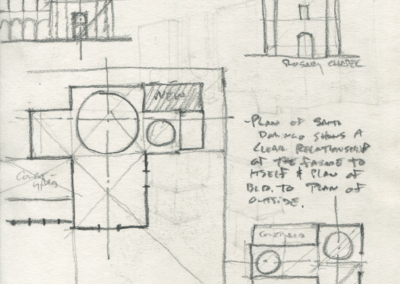 ROSARY CHAPEL
NEW
-PLAN OF SANTO
DOMINGO SHOWS A
CLEAR RELATIONSHIP
OF THE FACADE TO
ITSELF & PLAN OF
BLD. TO PLAN OF
OUTSIDE.